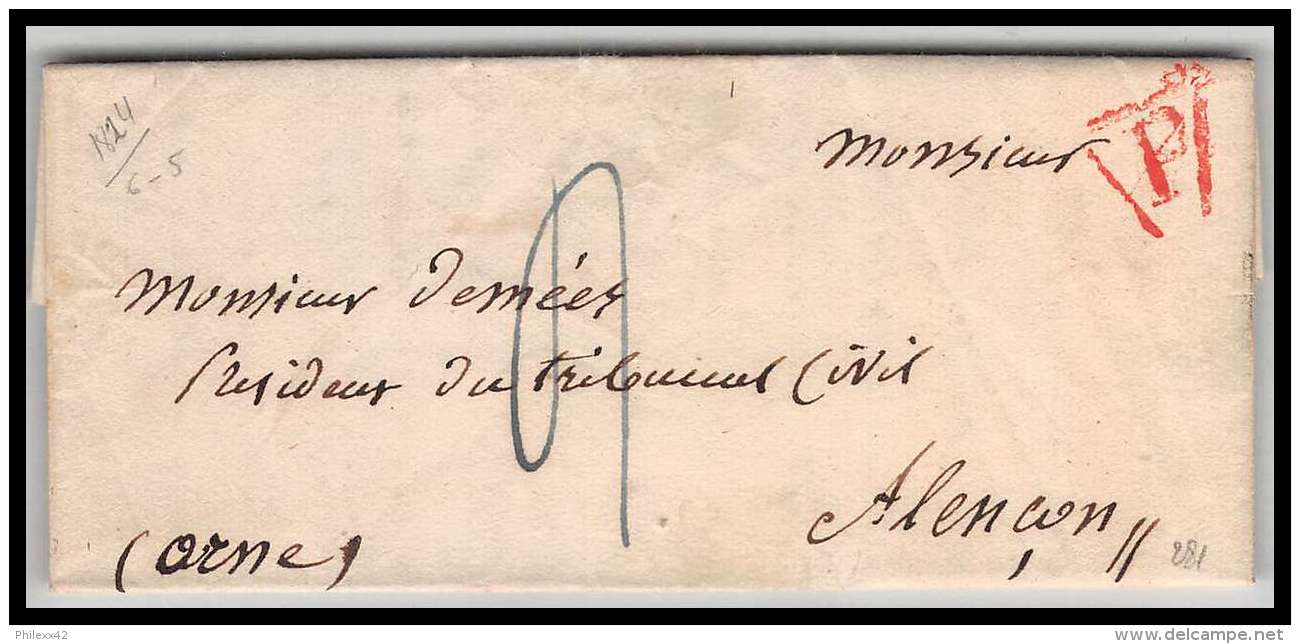 1824
6-5
P
Monsieur
Monsieur Demées
President du tribunal Civil
Alençon
(Orne)
281
Philexx42
delcampe.net